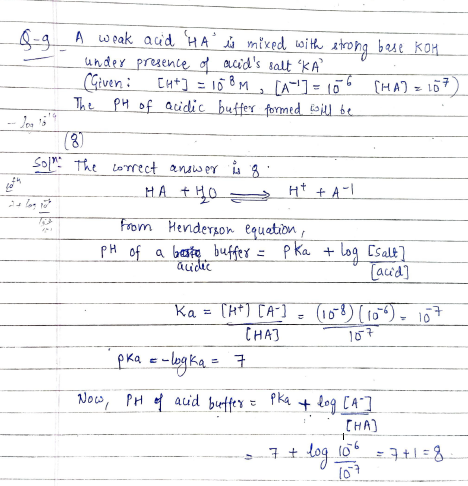 Q-9 A weak acid 'HA' is mixed with strong base KOH
under presence of acid's salt 'KA'
(Given: [H+] = 10⁻⁸ M, [A⁻¹] = 10⁻⁶ [HA] = 10⁻⁷)
The PH of acidic buffer formed will be
(8)
Solⁿ: The correct answer is 8.
HA + H₂O ⇌ H⁺ + A⁻¹
From Henderson equation,
PH of a buffer = PKa + log [Salt]
acidic [acid]
Ka = [H⁺] [A⁻] = (10⁻⁸) (10⁻⁶) = 10⁻⁷
[HA] 10⁻⁷
PKa = -log Ka = 7
Now, PH of acid buffer = PKa + log [A⁻]
[HA]
= 7 + log 10⁻⁶ = 7 + 1 = 8
10⁻⁷